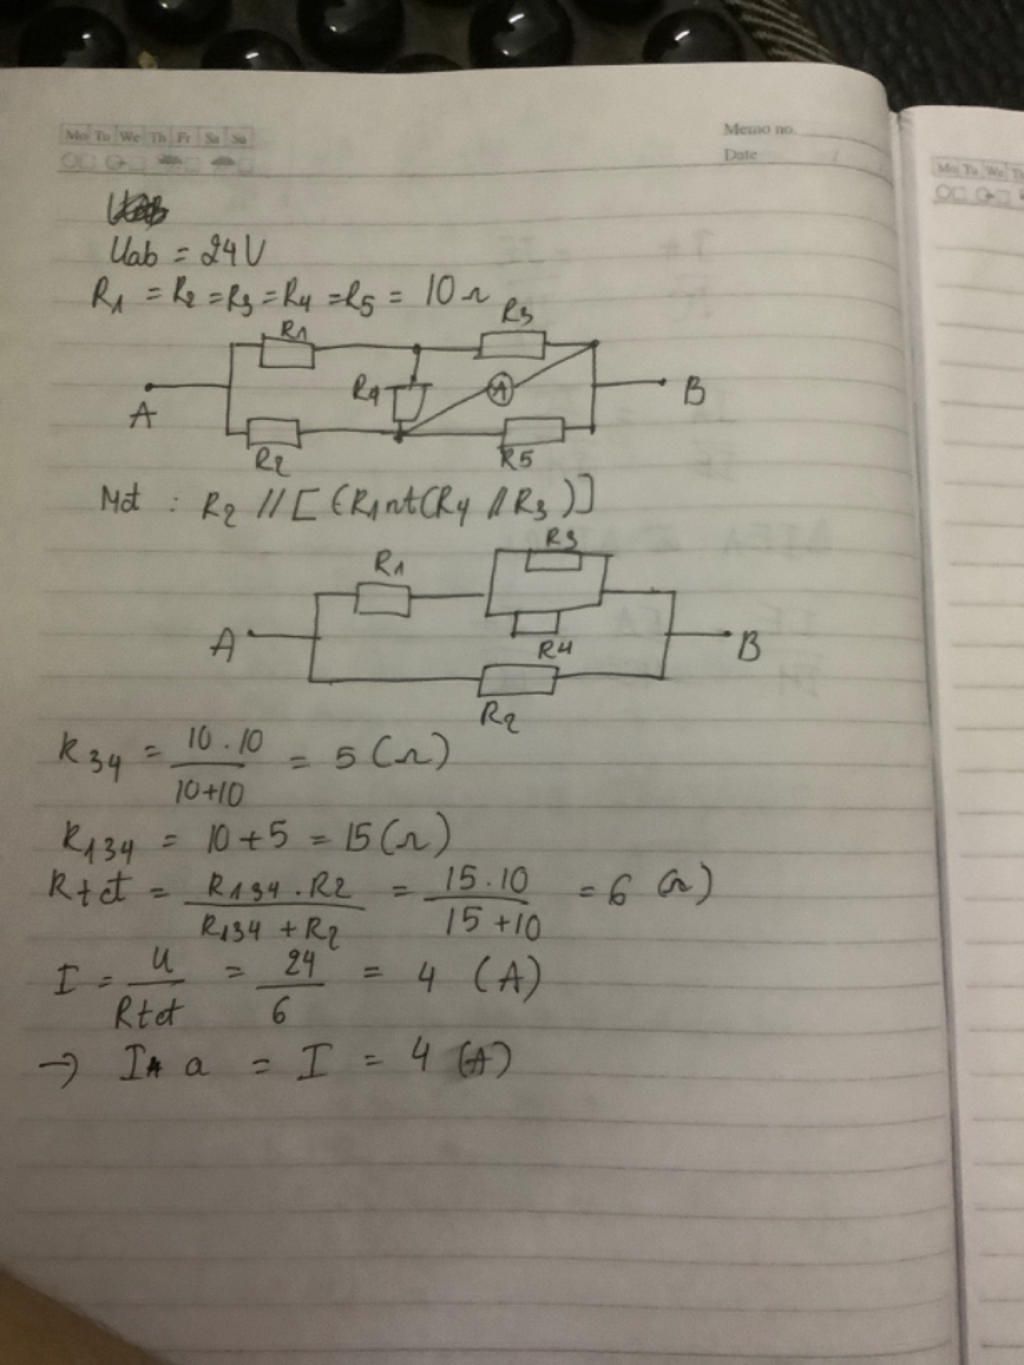 Mo Tu We Th Fr Sa Su
Memo no.
Date
Uab = 24V
R1 = R2 = R3 = R4 = R5 = 10Ω
R1
R3
R4
A
A
B
R2
R5
Mđ : R2 // [(R1 nt (R4 // R3)]
R3
R1
A
R4
B
R2
R34 = 10 . 10 / 10+10 = 5 (Ω)
R134 = 10 + 5 = 15 (Ω)
Rtđ = R134 . R2 / R134 + R2 = 15 . 10 / 15 + 10 = 6 (Ω)
I = U / Rtđ = 24 / 6 = 4 (A)
→ I a = I = 4 (A)
Mo Tu We